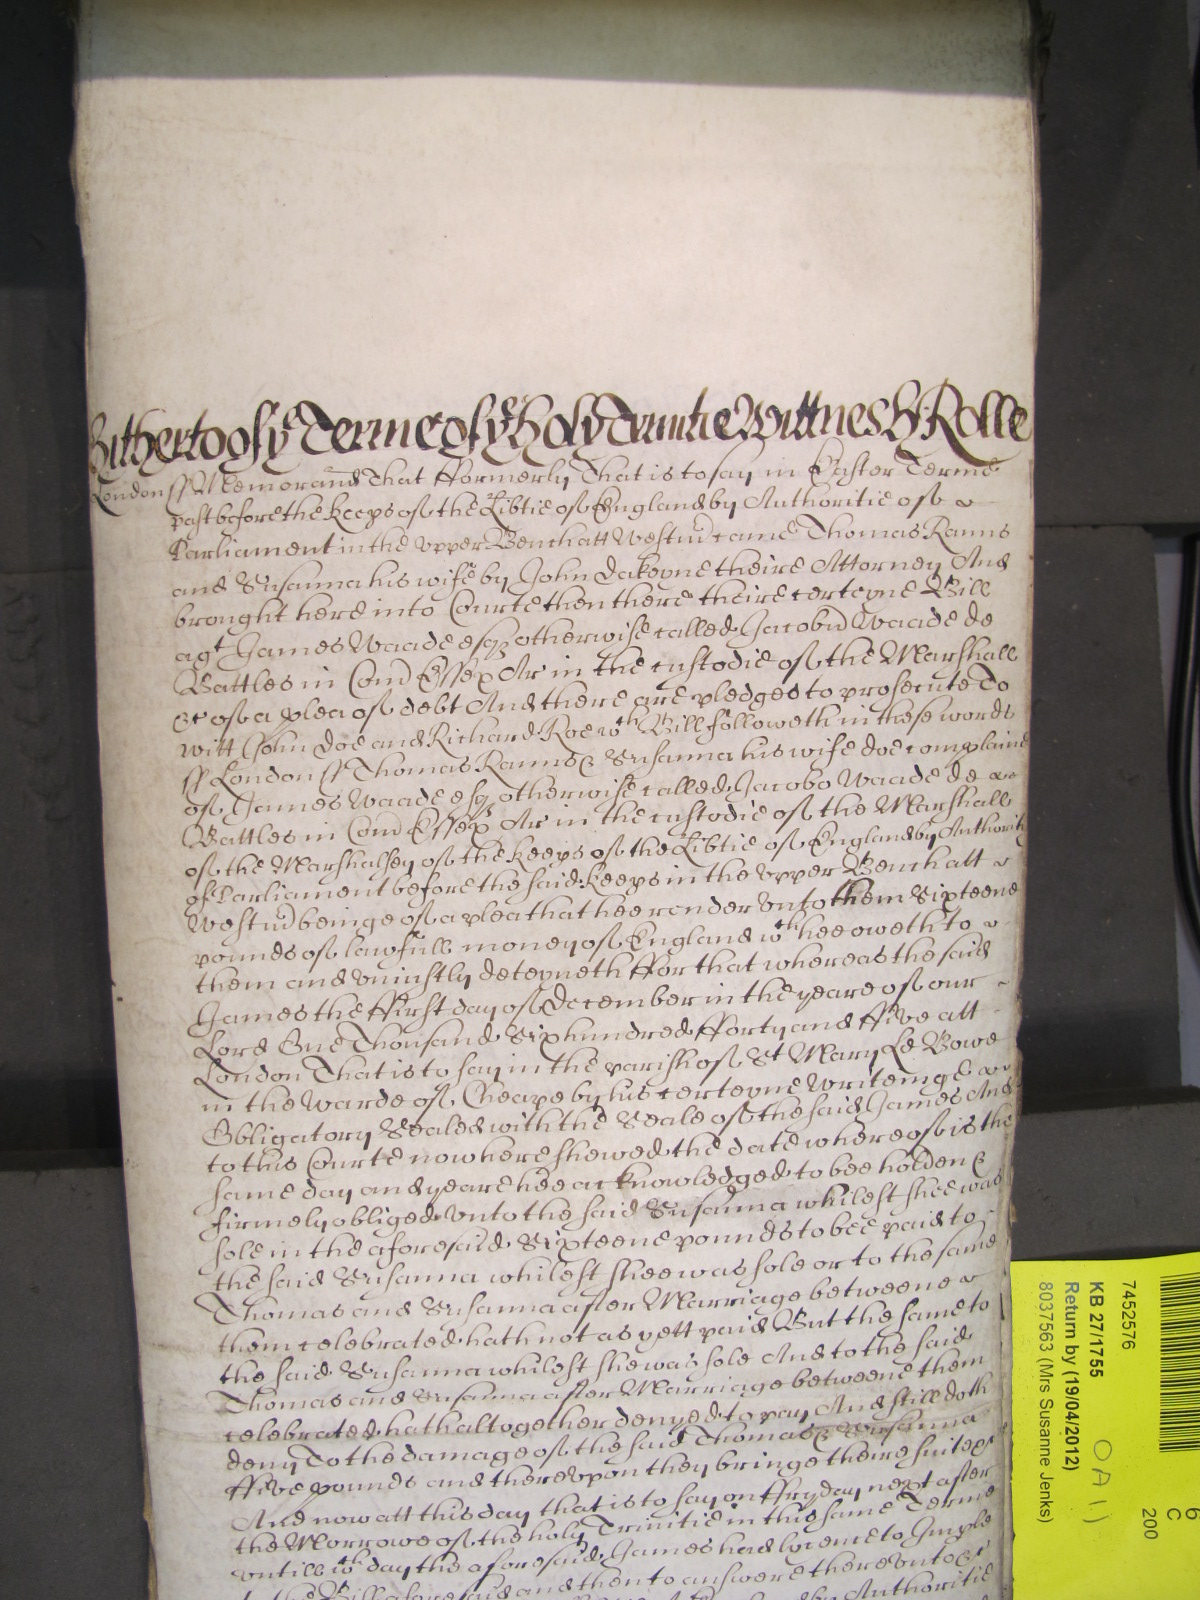 Hitherto of ye Terme of ye Holy Trinitie Wittnes H: Rolle
London ss Memorand That fformerly That is to say in Easter Terme
past before the Keeps of the Libtie of England by Authoritie of
Parliament in the vpper Bench att Westm came Thomas Ranns
and Susanna his wife by John Dakeyne theire Attorney And
brought here into Courte then there theire certeyne Bill
agt James Waade esqz otherwise called Jacobu Waade de
Battles in Com Essex Ar in the custodie of the Marshall
&c of a plea of debt And there are pledges to prosecute To
witt John Doe and Richard Roe wch Bill followeth in these words
ss London ss Thomas Ranns & Susanna his wife doe complaine
of James Waade esqz otherwise called Jacobo Waade de
Battles in Com Essex Ar in the custodie of the Marshall
of the Marshalsey of the Keeps of the Libtie of England by Authority
of Parliament before the said Keeps in the vpper Bench att
Westm beinge of a plea that hee render vnto them Sixteene
pounds of lawfull money of England wch hee oweth to
them and vniustly deteyneth ffor that whereas the said
James the ffirst day of December in the yeare of our
Lord One Thousand Six hundred fforty and ffive att
London That is to say in the parish of St Mary Le Bowe
in the Warde of Cheape by his certeyne writeinge
Obligatory Sealed with the Seale of the said James And
to this Courte now here shewed the date whereof is the
same day and yeare hee acknowledged to bee holden &
firmely obliged vnto the said Susanna whilest shee was
sole in the aforesaid Sixteene pounds to bee paid to
the said Susanna whilest shee was sole or to the same
Thomas and Susanna after Marriage betweene
them celebrated hath not as yett paid But the same to
the said Susanna whilest she was sole And to the said
Thomas and Susanna after Marriage betweene them
celebrated hath altogether denyed to pay And still doth
deny To the damage of the said Thomas & Susanna
ffive pounds and therevpon they bringe theire suite &c
And now att this day that is to say on ffryday next after
the Morrowe of the holy Trinitie in this same Terme
vntill wch day the aforesaid James had licence to Imple
to the Bill aforesaid and then to answere therevnto &c
by Authoritie
7452576
KB 27/1755
Return by (19/04/2012)
8037563 (Mrs Susanne Jenks)
6
C
200